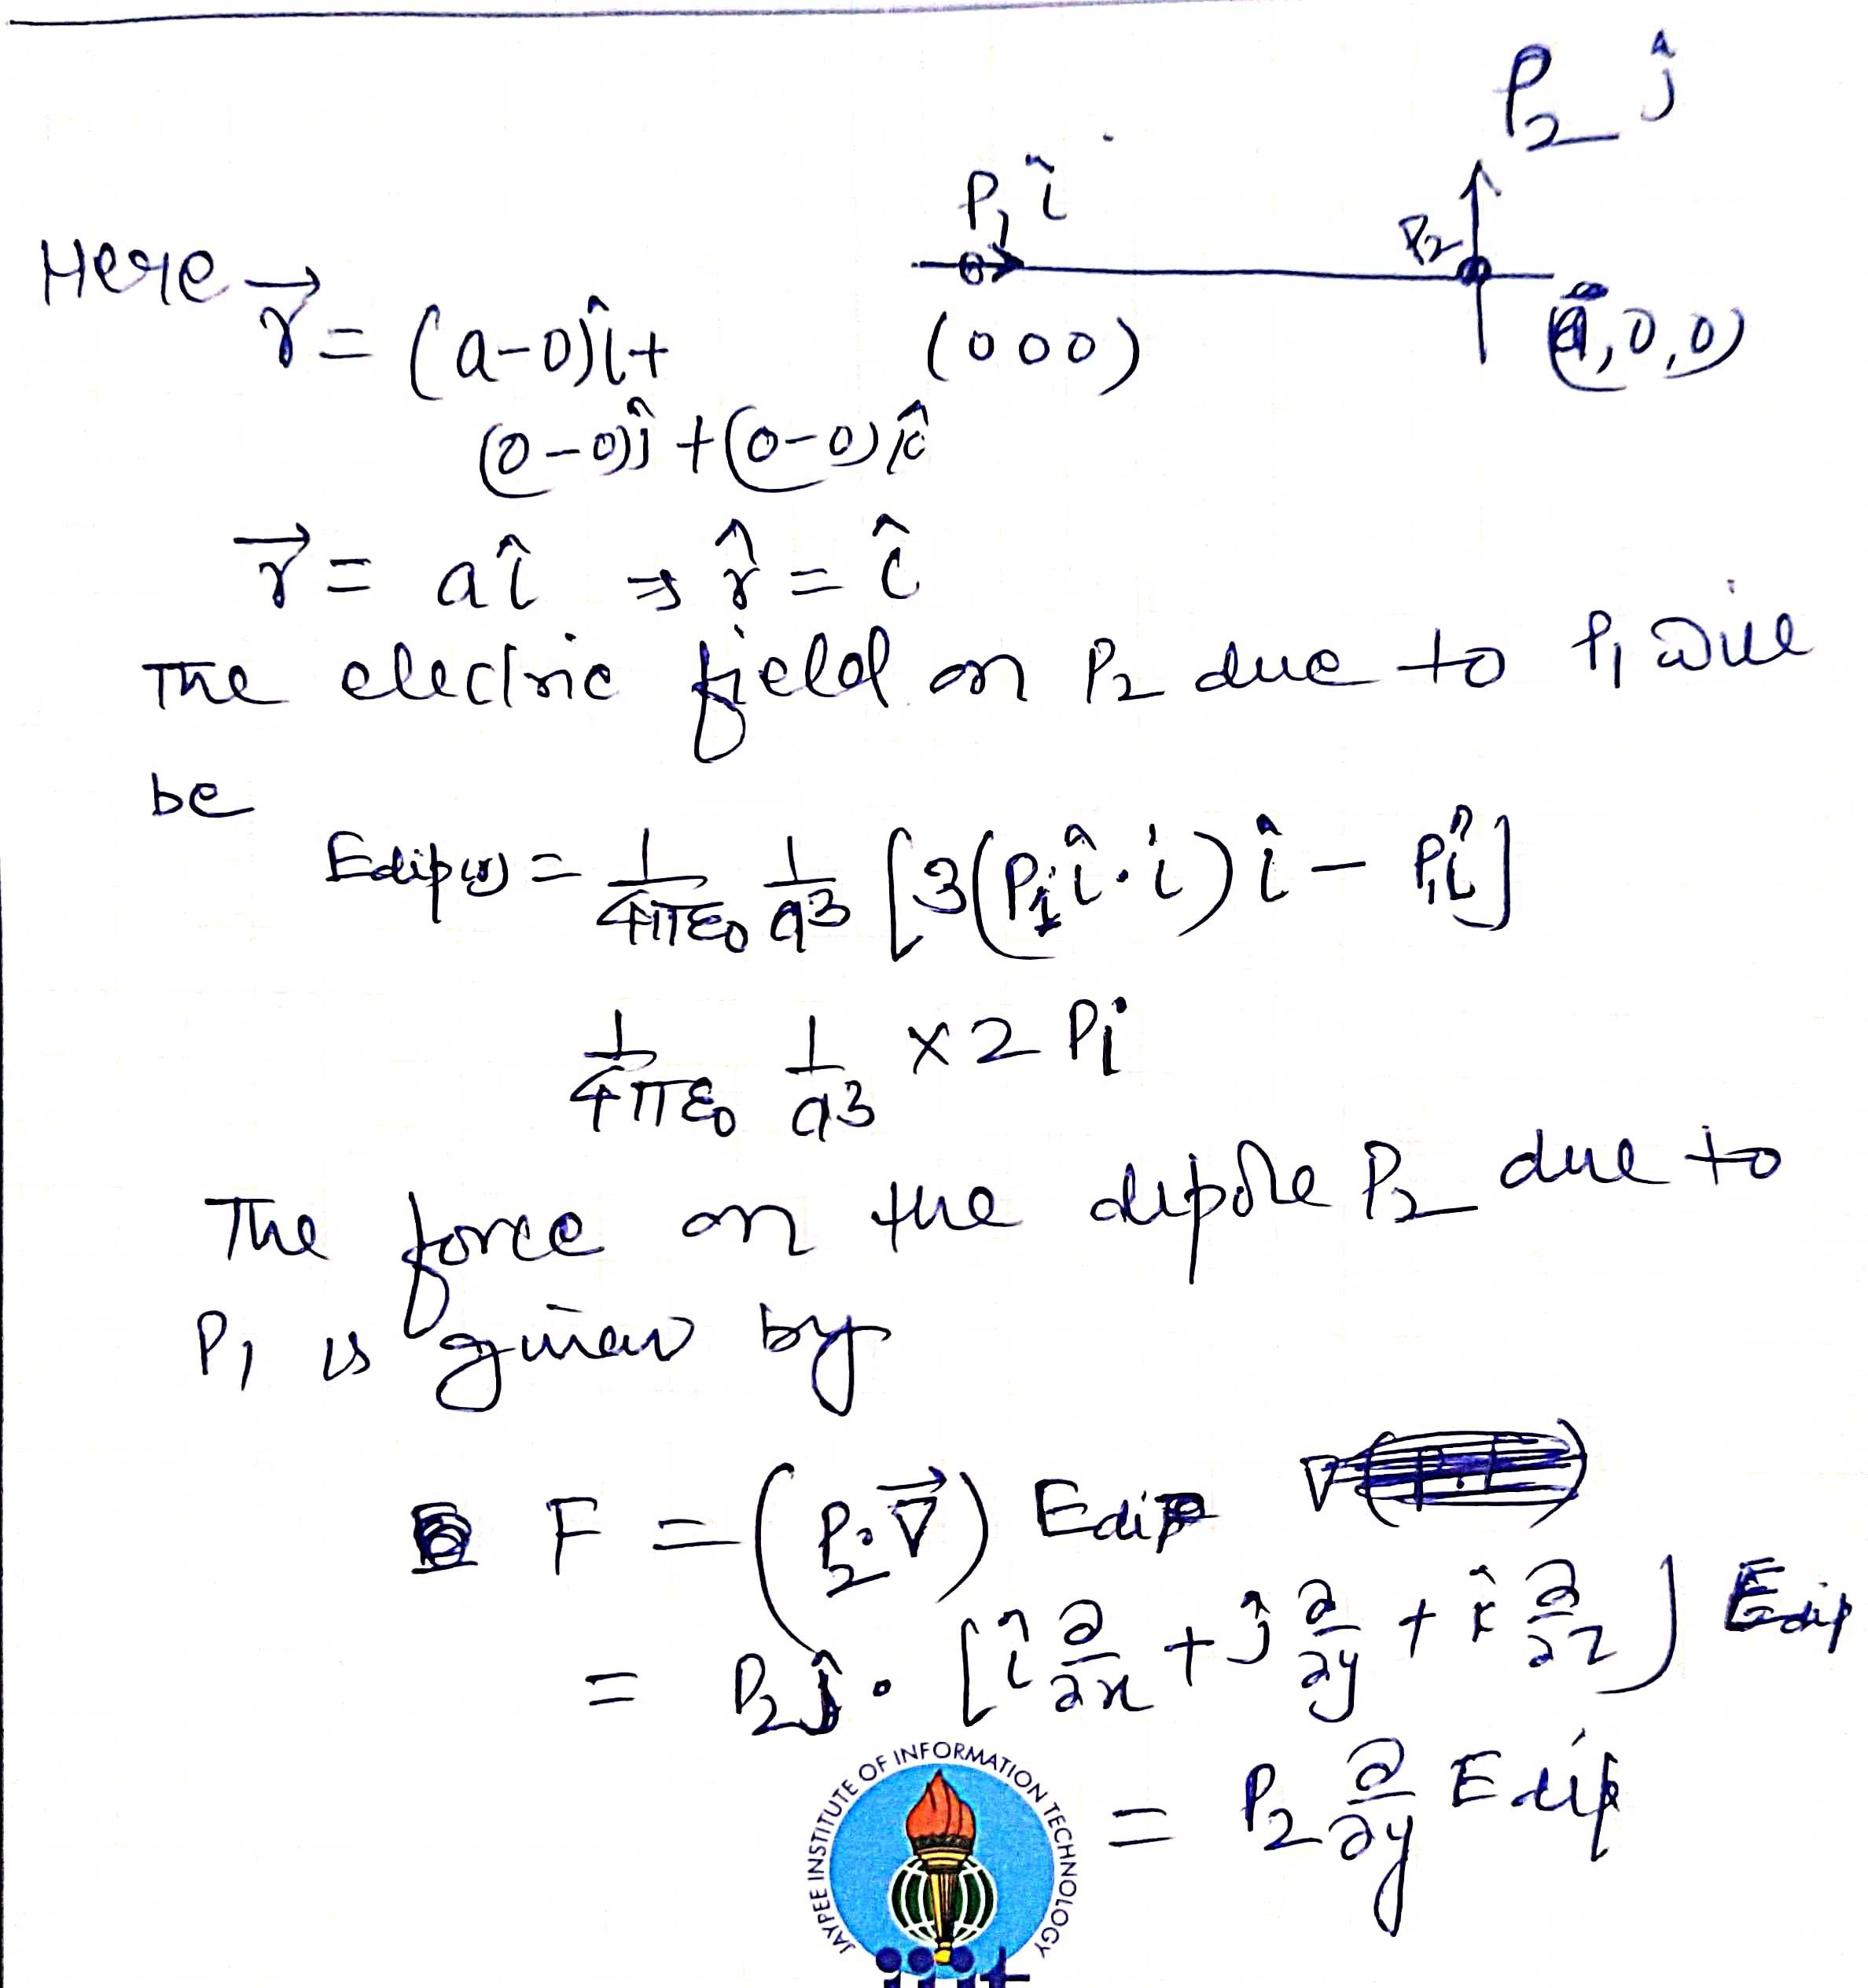 P₂ ĵ
P₁ î
P₂
Here r⃗ = (a-0)î +
(0 0 0)
(a,0,0)
(0-0)ĵ + (0-0)k̂
r⃗ = aî ⇒ r̂ = î
The electric field on P₂ due to P₁ will
be
Edip(r) = 1/4πε₀ 1/a³ [3(P₁î·i)î - P₁î]
1/4πε₀ 1/a³ × 2 Pi
The force on the dipole P₂ due to
P₁ is given by
F = (P₂·∇⃗) Edip ∇
= P₂ĵ · [î ∂/∂x + ĵ ∂/∂y + k̂ ∂/∂z] Edip
= P₂ ∂/∂y Edip
JAYPEE INSTITUTE OF INFORMATION TECHNOLOGY